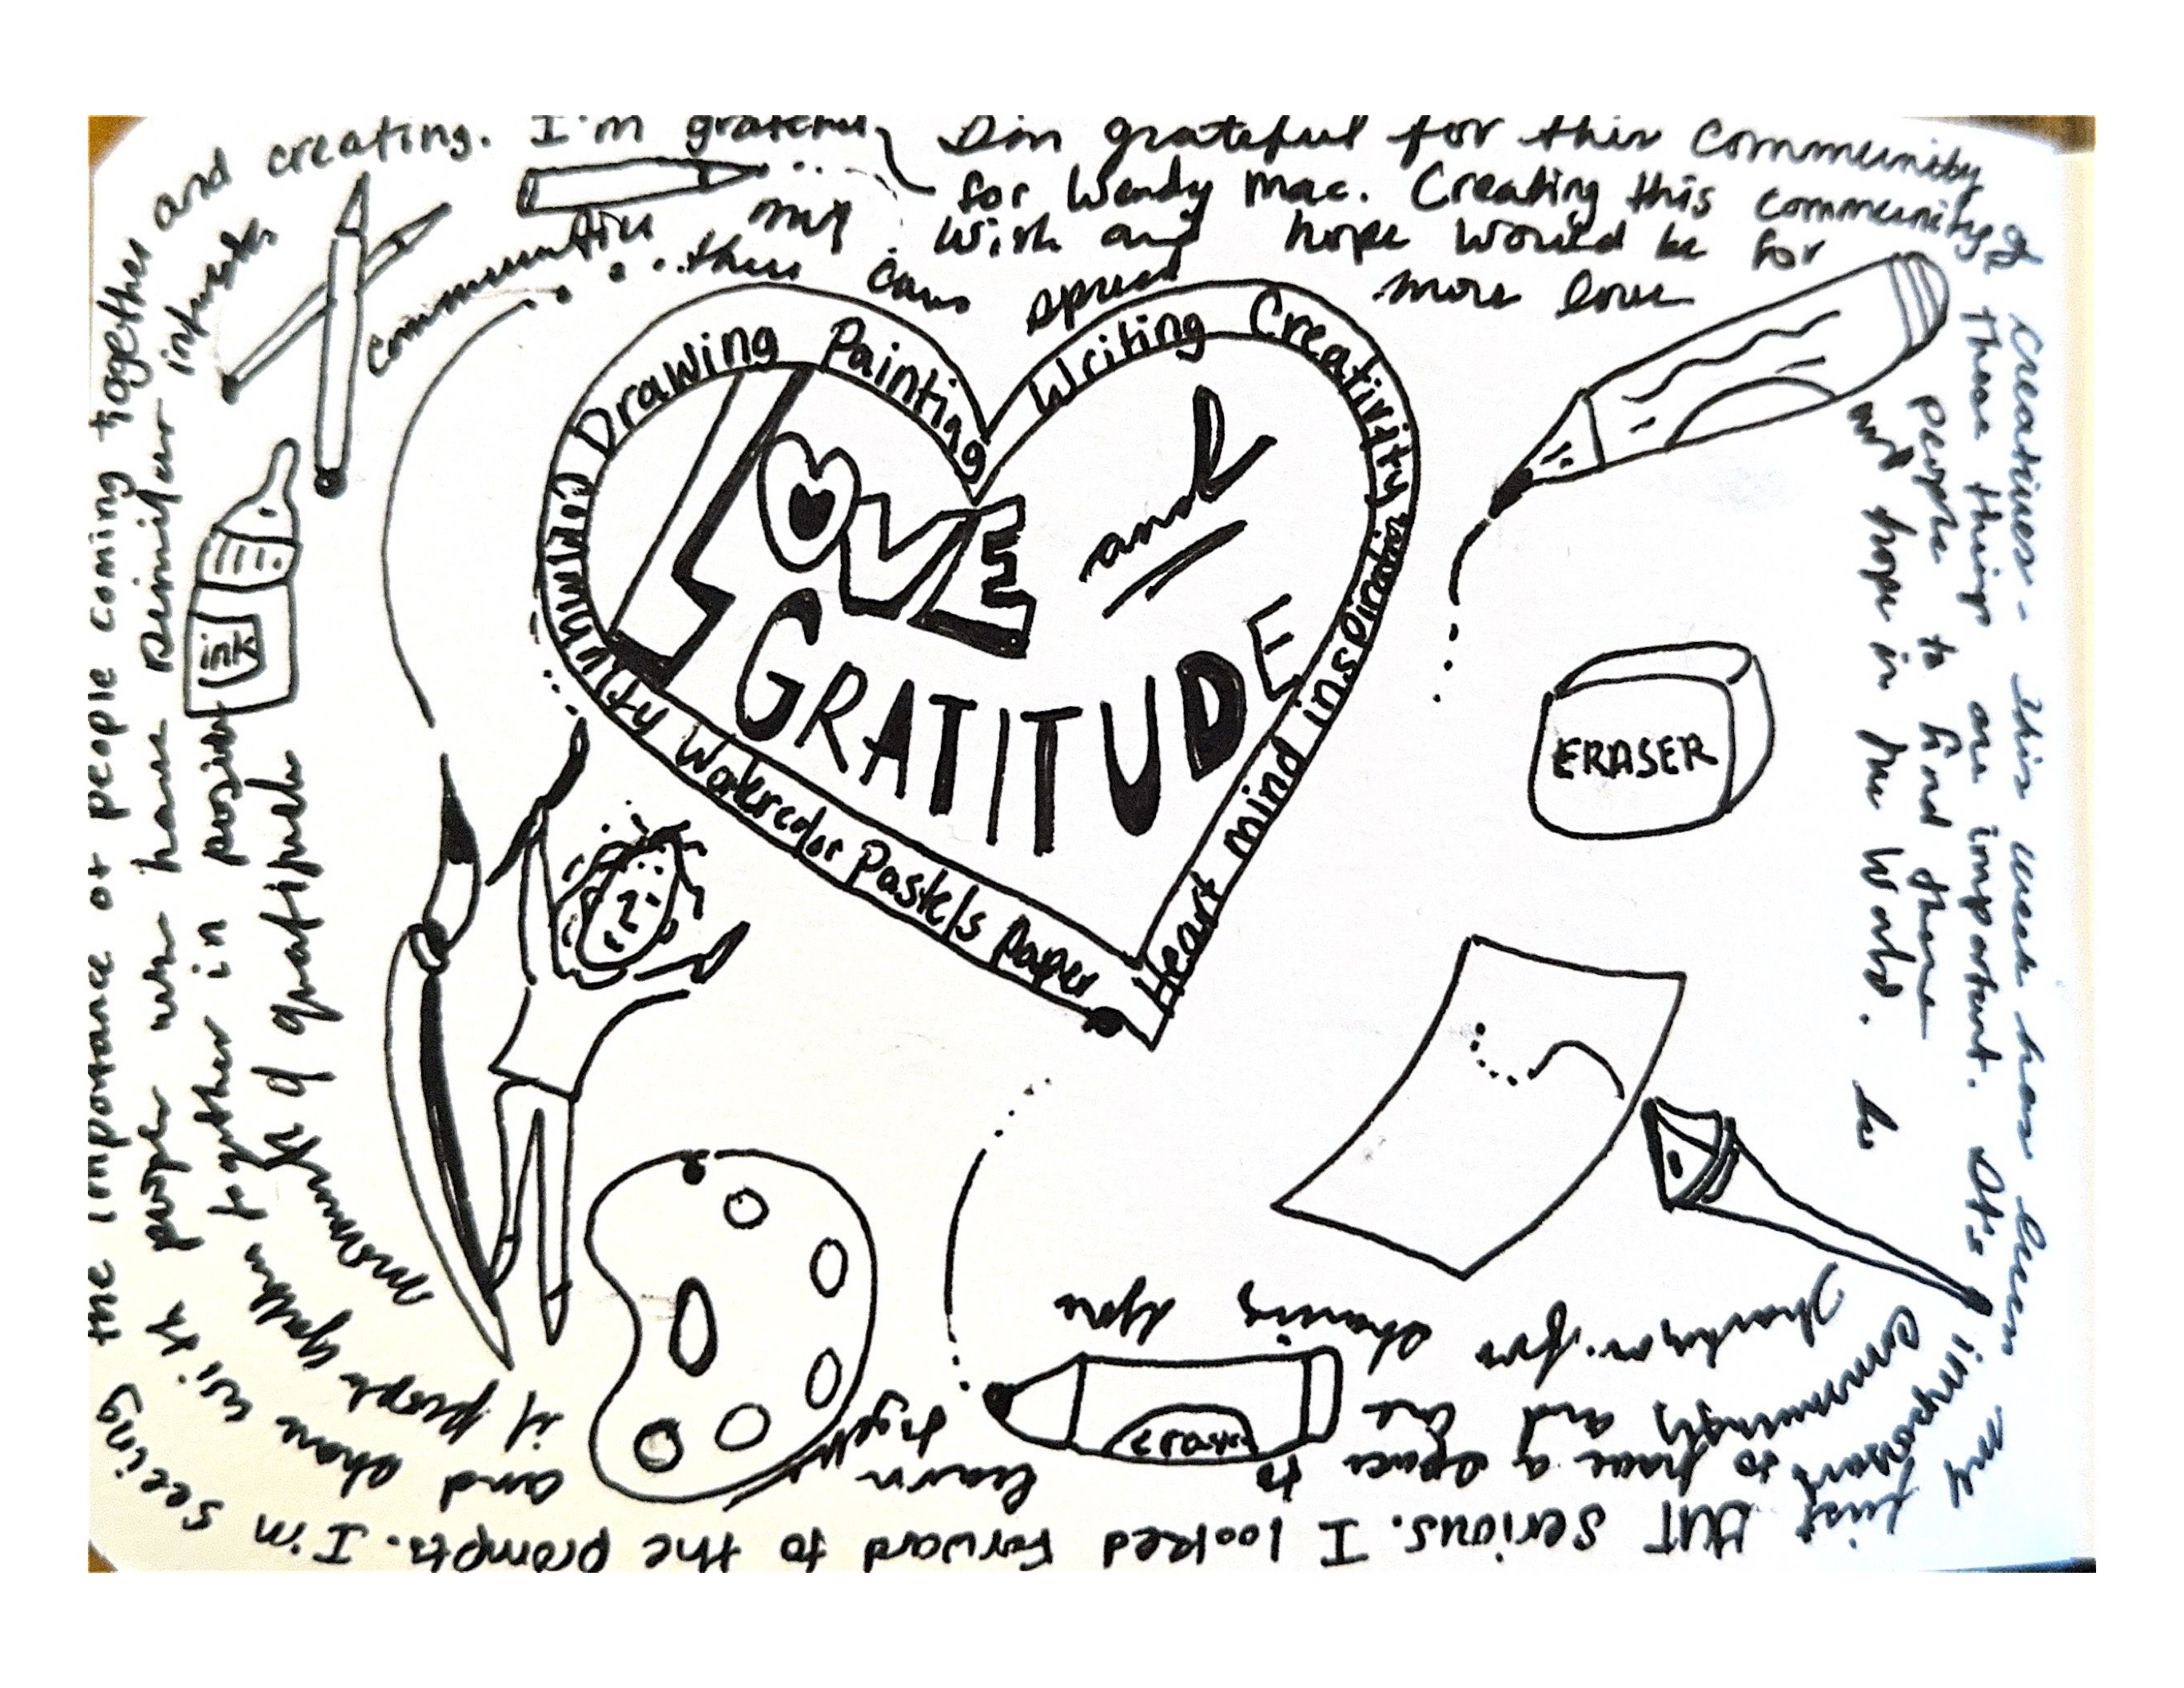 I'm grateful for this community of
creatives - This week has been
just but serious. I looked forward to the prompts. I'm seeing
the importance of people coming together
and creating. I'm grateful
for Wendy Mac. Creating this community
These things are important. It's
important to have a space to learn
and share with
people who have similar
interests
my wish and hope would be for
more love
people to find
and hope in the World.
community and
Thank you for sharing
together
if people gather
together in
moments of gratitude
communities
this can spread
Drawing Painting Writing Creativity inspiration
Community Watercolor Pastels paper
Heart mind
LOVE
and
GRATITUDE
ink
ERASER
crayon